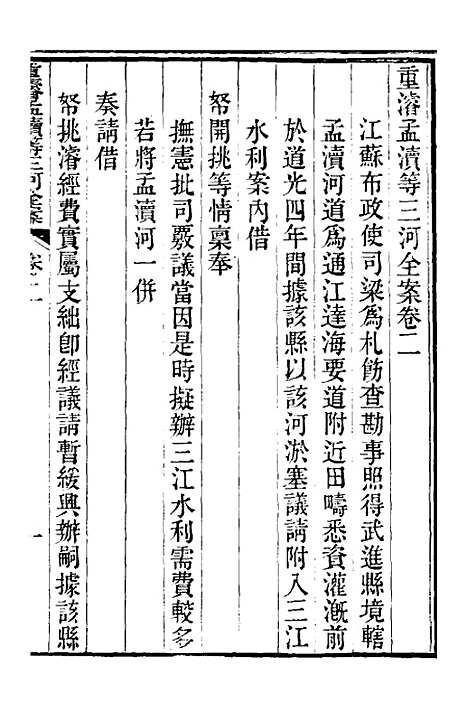 重濬孟瀆等三河全案卷二
江蘇布政使司梁爲札飭查勘事照得武進縣境轄
孟瀆河道爲通江達海要道附近田疇悉資灌漑前
於道光四年間據該縣以該河淤塞議請附入三江
水利案內借
帑開挑等情稟奉
撫憲批司覈議當因是時擬辦三江水利需費較多
若將孟瀆河一併
奏請借
帑挑濬經費實屬支絀卽經議請暫緩興辦嗣據該縣
重濬孟瀆等三河全案
卷二
一